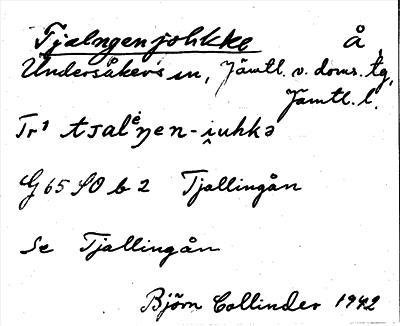 Tjalngenjohkke Å
Undersåkers sn, Jämtl. v. doms. tg,
Jämtl. l.
Tr¹
G 65 SO b 2 Tjallingån
Se Tjallingån
Björn Collinder 1942